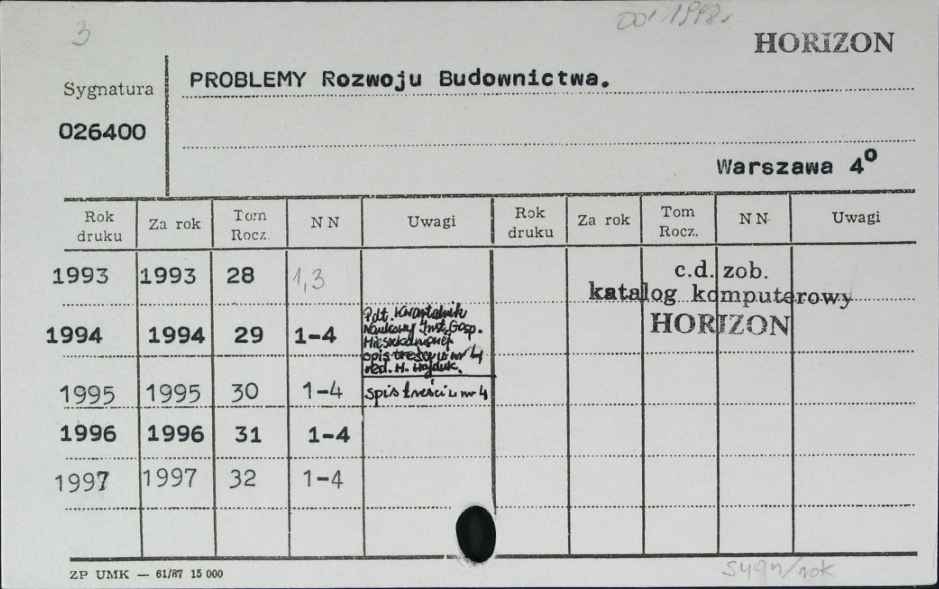 3
od 1998r
HORIZON
Sygnatura
PROBLEMY Rozwoju Budownictwa.
026400
Warszawa 4º
Rok druku Za rok Tom Rocz. N N Uwagi Rok druku Za rok Tom Rocz. N N Uwagi
1993 1993 28 1,3
c.d. zob.
katalog komputerowy
HORIZON
1994 1994 29 1-4
Pdt. Kwartalnik
Naukowy Inst. Gosp.
Mieszkaniowej
spis treści w nr 4
red. H. Hajduk.
1995 1995 30 1-4 spis treści w nr 4
1996 1996 31 1-4
1997 1997 32 1-4
ZP UMK — 61/87 15 000
sygn/rok